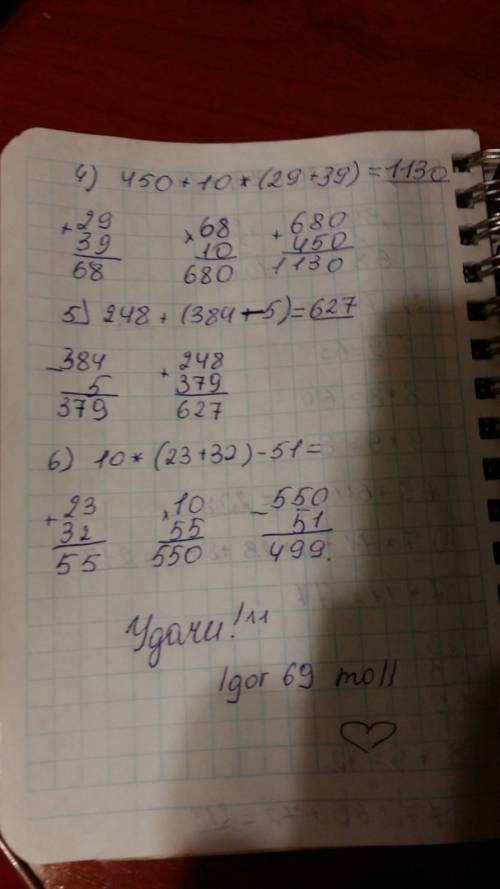 4) 450 + 10 * (29 + 39) = 1130
+ 29 × 68 + 680
39 10 450
68 680 1130
5) 248 + (384 - 5) = 627
- 384 + 248
5 379
379 627
6) 10 * (23 + 32) - 51 =
+ 23 × 10 - 550
32 55 51
55 550 499.
Удачи!11
Igor 69 moll